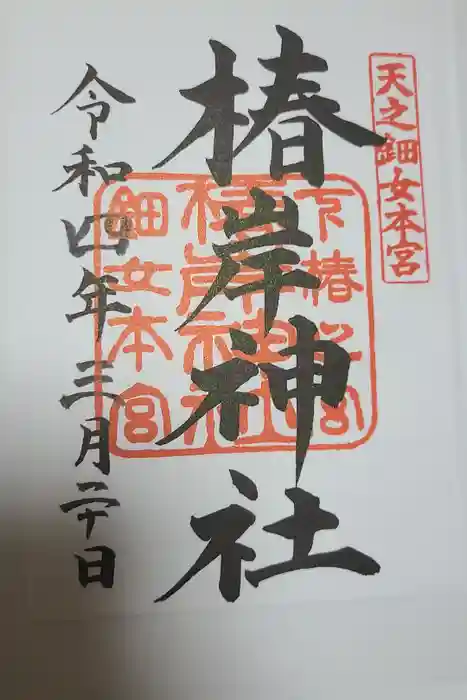 天之鈿女本宮
椿岸神社
椿岸神社
鈿女本宮
令和四年三月二十日